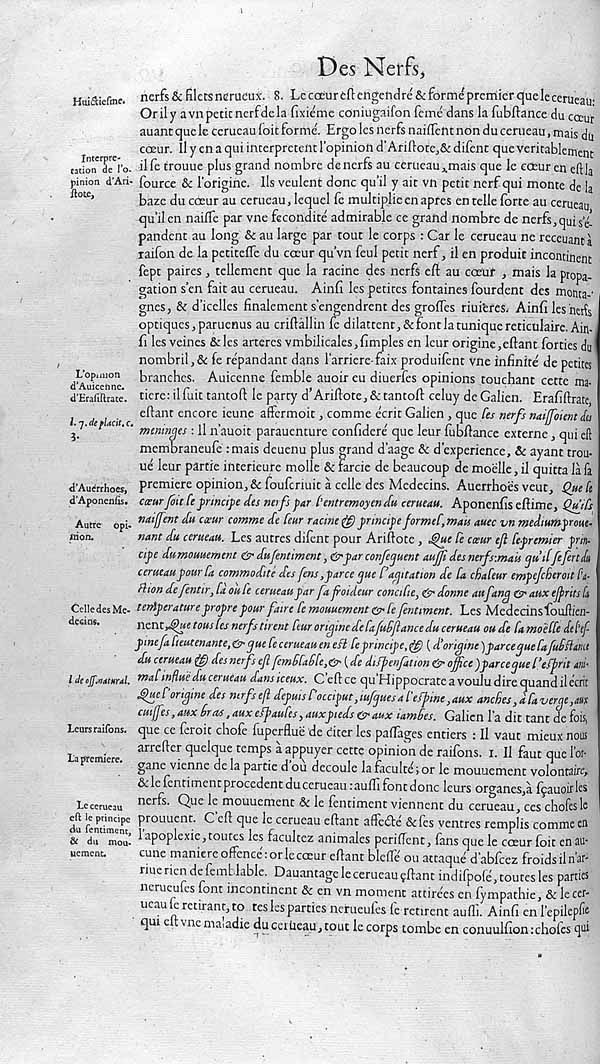 Des Nerfs,
Huictiesme.
nerfs & filets nerueux. 8. Le cœur est engendré & formé premier que le cerueau:
Or il y a vn petit nerf de la sixiéme coniugaison semé dans la substance du cœur
auant que le cerueau soit formé. Ergo les nerfs naissent non du cerueau, mais du
cœur. Il y en a qui interpretent l'opinion d'Aristote, & disent que veritablement
Interpre-
tation de l'o-
pinion d'Ari-
stote,
il se trouue plus grand nombre de nerfs au cerueau, mais que le cœur en est la
source & l'origine. Ils veulent donc qu'il y ait vn petit nerf qui monte de la
baze du cœur au cerueau, lequel se multiplie en apres en telle sorte au cerueau,
qu'il en naisse par vne fecondité admirable ce grand nombre de nerfs, qui s'é-
pandent au long & au large par tout le corps : Car le cerueau ne receuant à
raison de la petitesse du cœur qu'vn seul petit nerf, il en produit incontinent
sept paires, tellement que la racine des nerfs est au cœur, mais la propa-
gation s'en fait au cerueau. Ainsi les petites fontaines sourdent des monta-
gnes, & d'icelles finalement s'engendrent des grosses riuieres. Ainsi les nerfs
optiques, paruenus au cristallin se dilattent, & font la tunique reticulaire. Ain-
si les veines & les arteres vmbilicales, simples en leur origine, estant sorties du
nombril, & se répandant dans l'arriere-faix produisent vne infinité de petites
L'opinion
d'Auicenne.
d'Erasistrate.
branches. Auicenne semble auoir eu diuerses opinions touchant cette ma-
tiere: il suit tantost le party d'Aristote, & tantost celuy de Galien. Erasistrate,
l. 7. de placit. c.
3.
estant encore ieune affermoit, comme écrit Galien, que les nerfs naissoient des
meninges : Il n'auoit parauenture consideré que leur substance externe, qui est
membraneuse : mais deuenu plus grand d'aage & d'experience, & ayant trou-
ué leur partie interieure molle & farcie de beaucoup de moëlle, il quitta là sa
d'Auerrhoes,
d'Aponensis.
premiere opinion, & souscriuit à celle des Medecins. Auerrhoës veut, Que le
cœur soit le principe des nerfs par l'entremoyen du cerueau. Aponensis estime, Qu'ils
Autre opi-
nion.
naissent du cœur comme de leur racine & principe formel, mais auec vn medium proue-
nant du cerueau. Les autres disent pour Aristote, Que le cœur est le premier prin-
cipe du mouuement & du sentiment, & par consequent aussi des nerfs: mais qu'il se sert du
cerueau pour la commodité des sens, parce que l'agitation de la chaleur empescheroit l'a-
ction de sentir, là où le cerueau par sa froideur concilie, & donne au sang & aux esprits la
Celle des Me-
decins.
temperature propre pour faire le mouuement & le sentiment. Les Medecins soustien-
nent, Que tous les nerfs tirent leur origine de la substance du cerueau ou de la moëlle de l'es-
pine sa lieutenante, & que le cerueau en est le principe, & (d'origine) parce que la substance
du cerueau & des nerfs est semblable, & (de dispensation & office) parce que l'esprit ani-
l. de oss. natural.
mal influë du cerueau dans iceux. C'est ce qu'Hippocrate a voulu dire quand il écrit
Que l'origine des nerfs est depuis l'occiput, iusques à l'espine, aux anches, à la verge, aux
cuisses, aux bras, aux espaules, aux pieds & aux iambes. Galien l'a dit tant de fois,
Leurs raisons.
que ce seroit chose superfluë de citer les passages entiers : Il vaut mieux nous
arrester quelque temps à appuyer cette opinion de raisons. 1. Il faut que l'or-
La premiere.
gane vienne de la partie d'où decoule la faculté; or le mouuement volontaire,
& le sentiment procedent du cerueau : aussi font donc leurs organes, à sçauoir les
nerfs. Que le mouuement & le sentiment viennent du cerueau, ces choses le
Le cerueau
est le principe
du sentiment,
& du mou-
uement.
prouuent. C'est que le cerueau estant affecté & ses ventres remplis comme en
l'apoplexie, toutes les facultez animales perissent, sans que le cœur soit en au-
cune maniere offencé: or le cœur estant blessé ou attaqué d'abscez froids il n'ar-
riue rien de semblable. Dauantage le cerueau estant indisposé, toutes les parties
nerueuses sont incontinent & en vn moment attirées en sympathie, & le cer-
ueau se retirant, toutes les parties nerueuses se retirent aussi. Ainsi en l'epilepsie
qui est vne maladie du cerueau, tout le corps tombe en conuulsion: choses qui